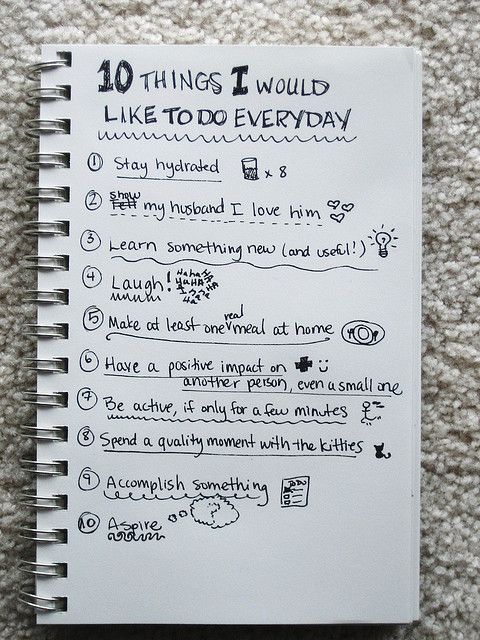 10 THINGS I WOULD
LIKE TO DO EVERYDAY
1 Stay hydrated x 8
2 show tell my husband I love him
3 Learn something new (and useful!)
4 Laugh! HaHaHA
5 Make at least one real meal at home
6 Have a positive impact on
another person, even a small one
7 Be active, if only for a few minutes
8 Spend a quality moment with the kitties
9 Accomplish something
10 Aspire ?